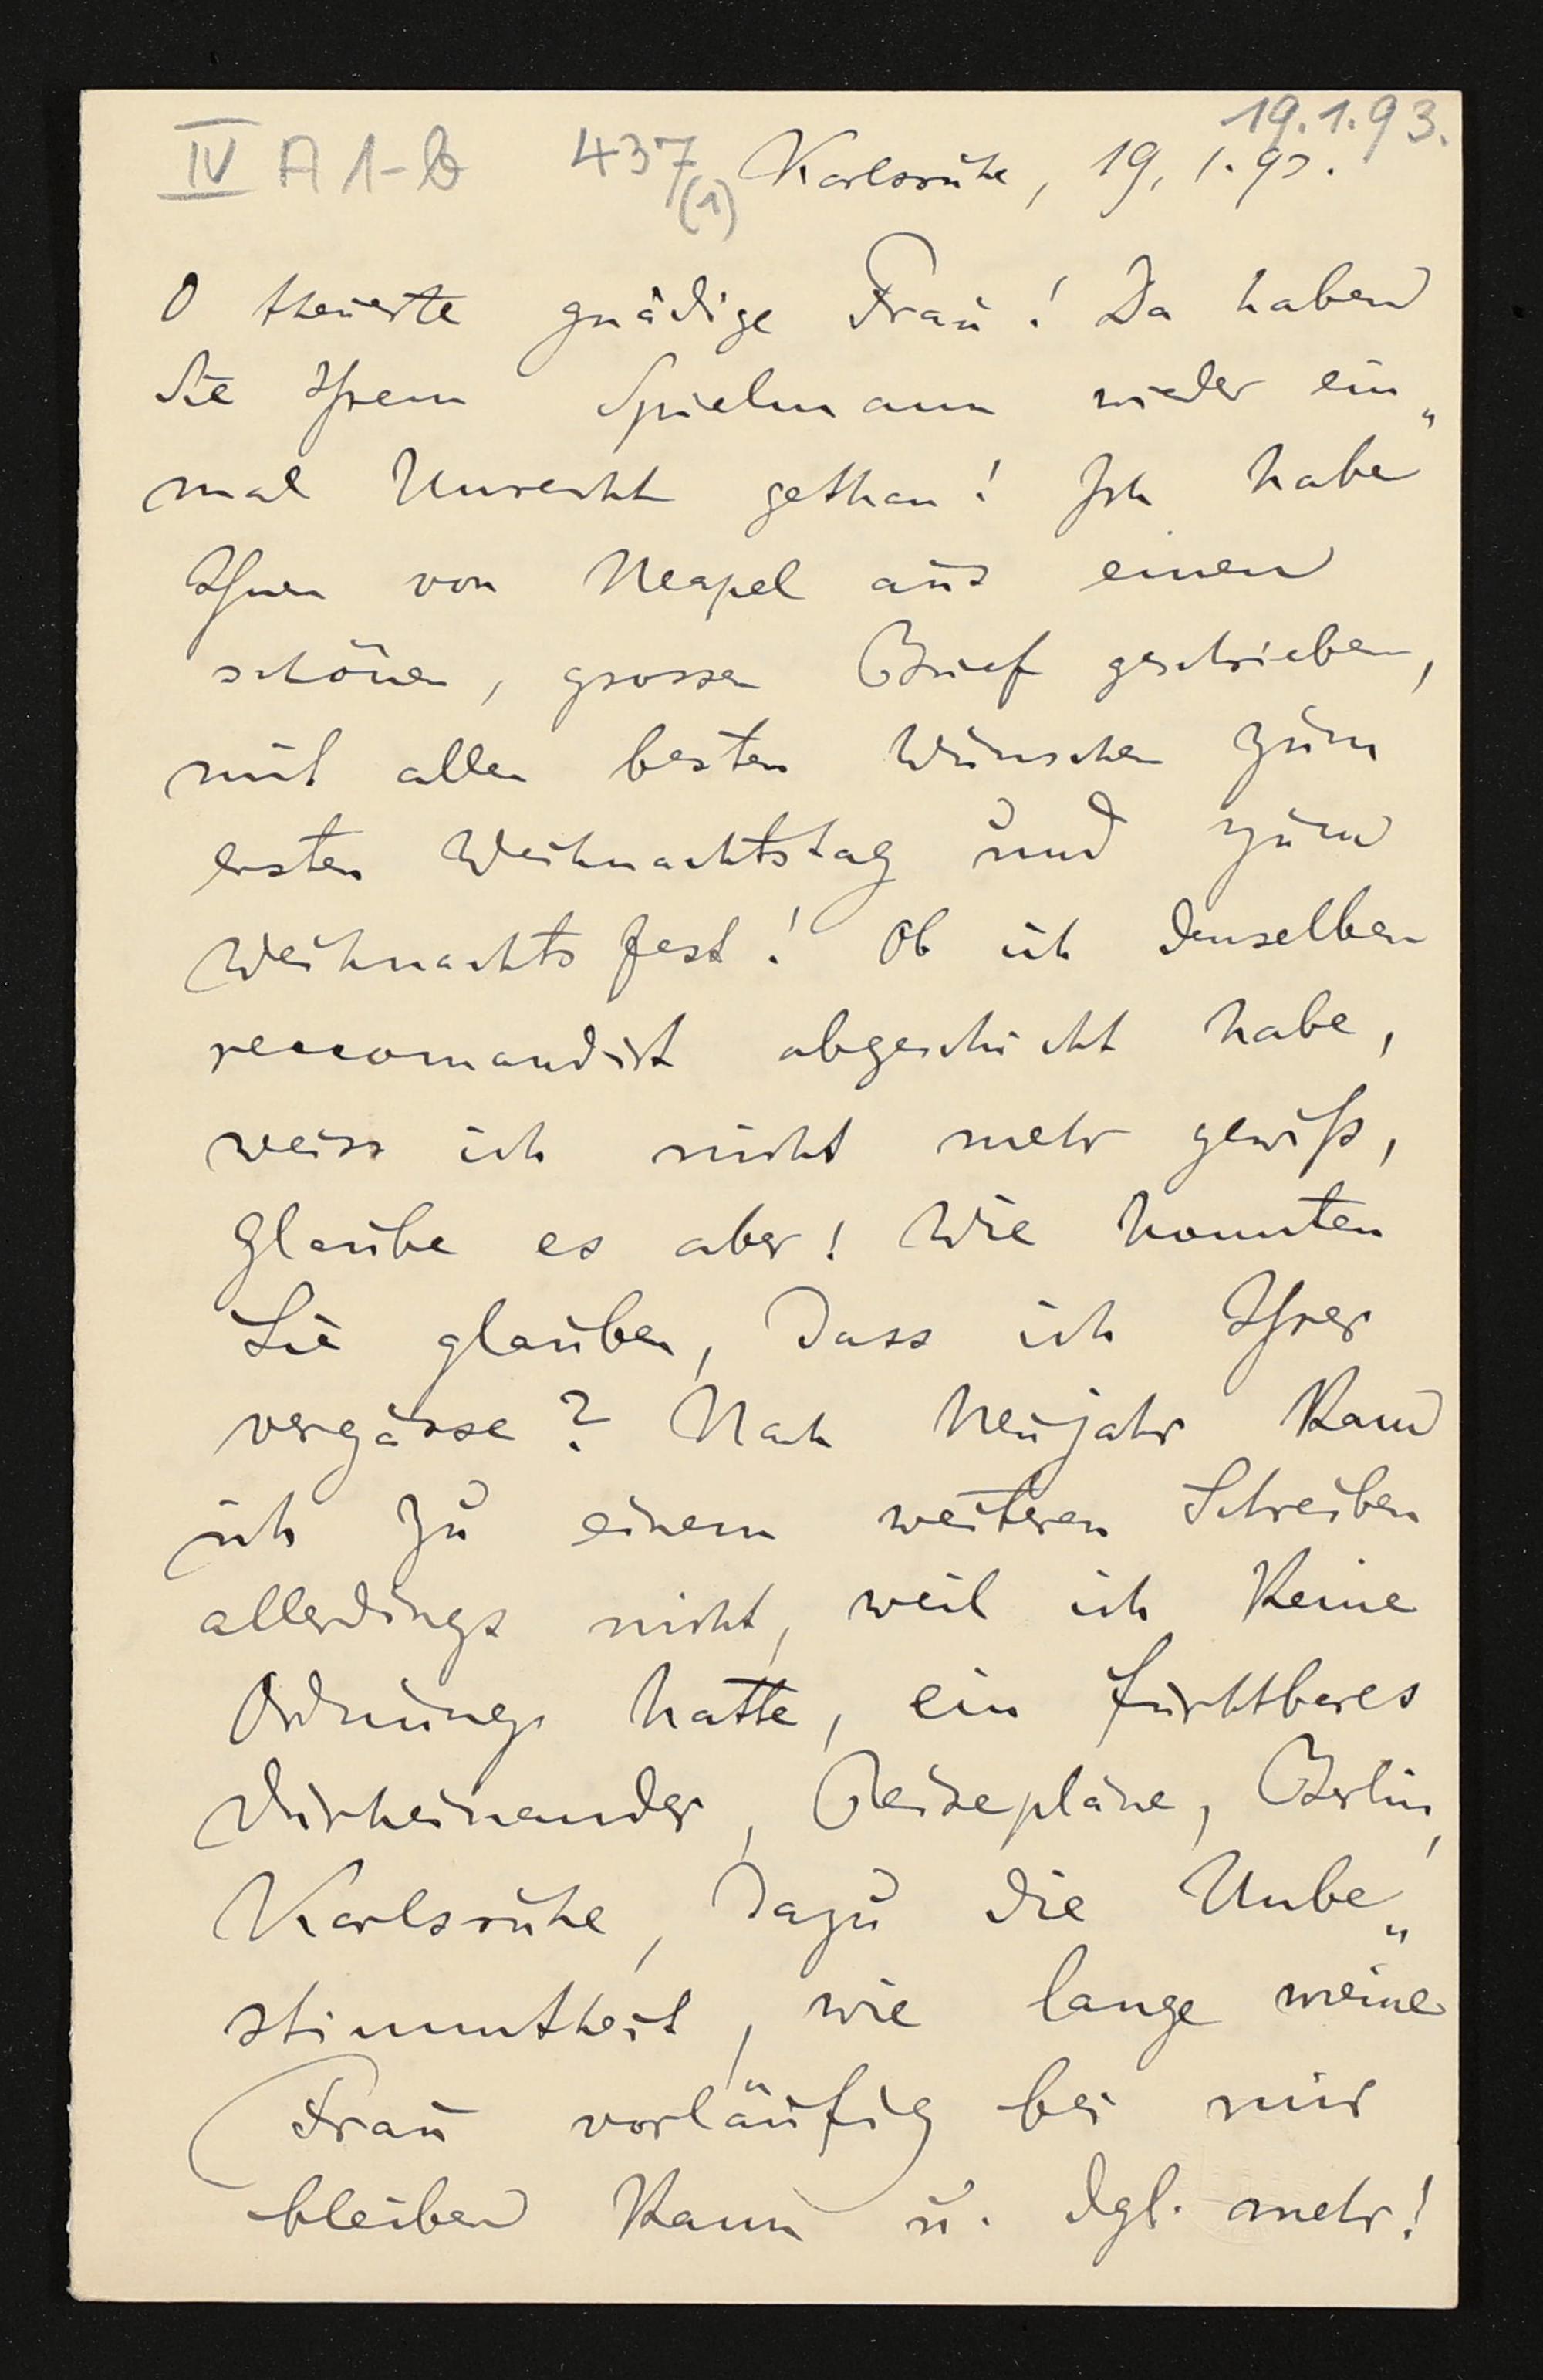 19.1.93.
IV A 1-b 437/(1) Karlsruhe, 19. 1. 93.
O theuerste gnädige Frau! Da haben
Sie Ihrem Spielmann wieder ein„
mal Unrecht gethan! Ich habe
Ihnen von Neapel aus einen
schönen, grossen Brief geschrieben,
mit allen besten Wünschen zum
ersten Weihnachtstag und zum
Weihnachtsfest! Ob ich denselben
reccomandirt abgeschickt habe,
weiss ich nicht mehr gewiß,
glaube es aber! Wie konnten
Sie glauben, dass ich Ihrer
vergässe? Nach Neujahr kam
ich zu einem weiteren Schreiben
allerdings nicht, weil ich keine
Ordnung hatte, ein furchtbares
Durcheinander, Reisepläne, Berlin,
Karlsruhe, dazu die Unbe„
stimmtheit, wie lange meine
Frau vorläufig bei mir
bleiben kann u. dgl. mehr!